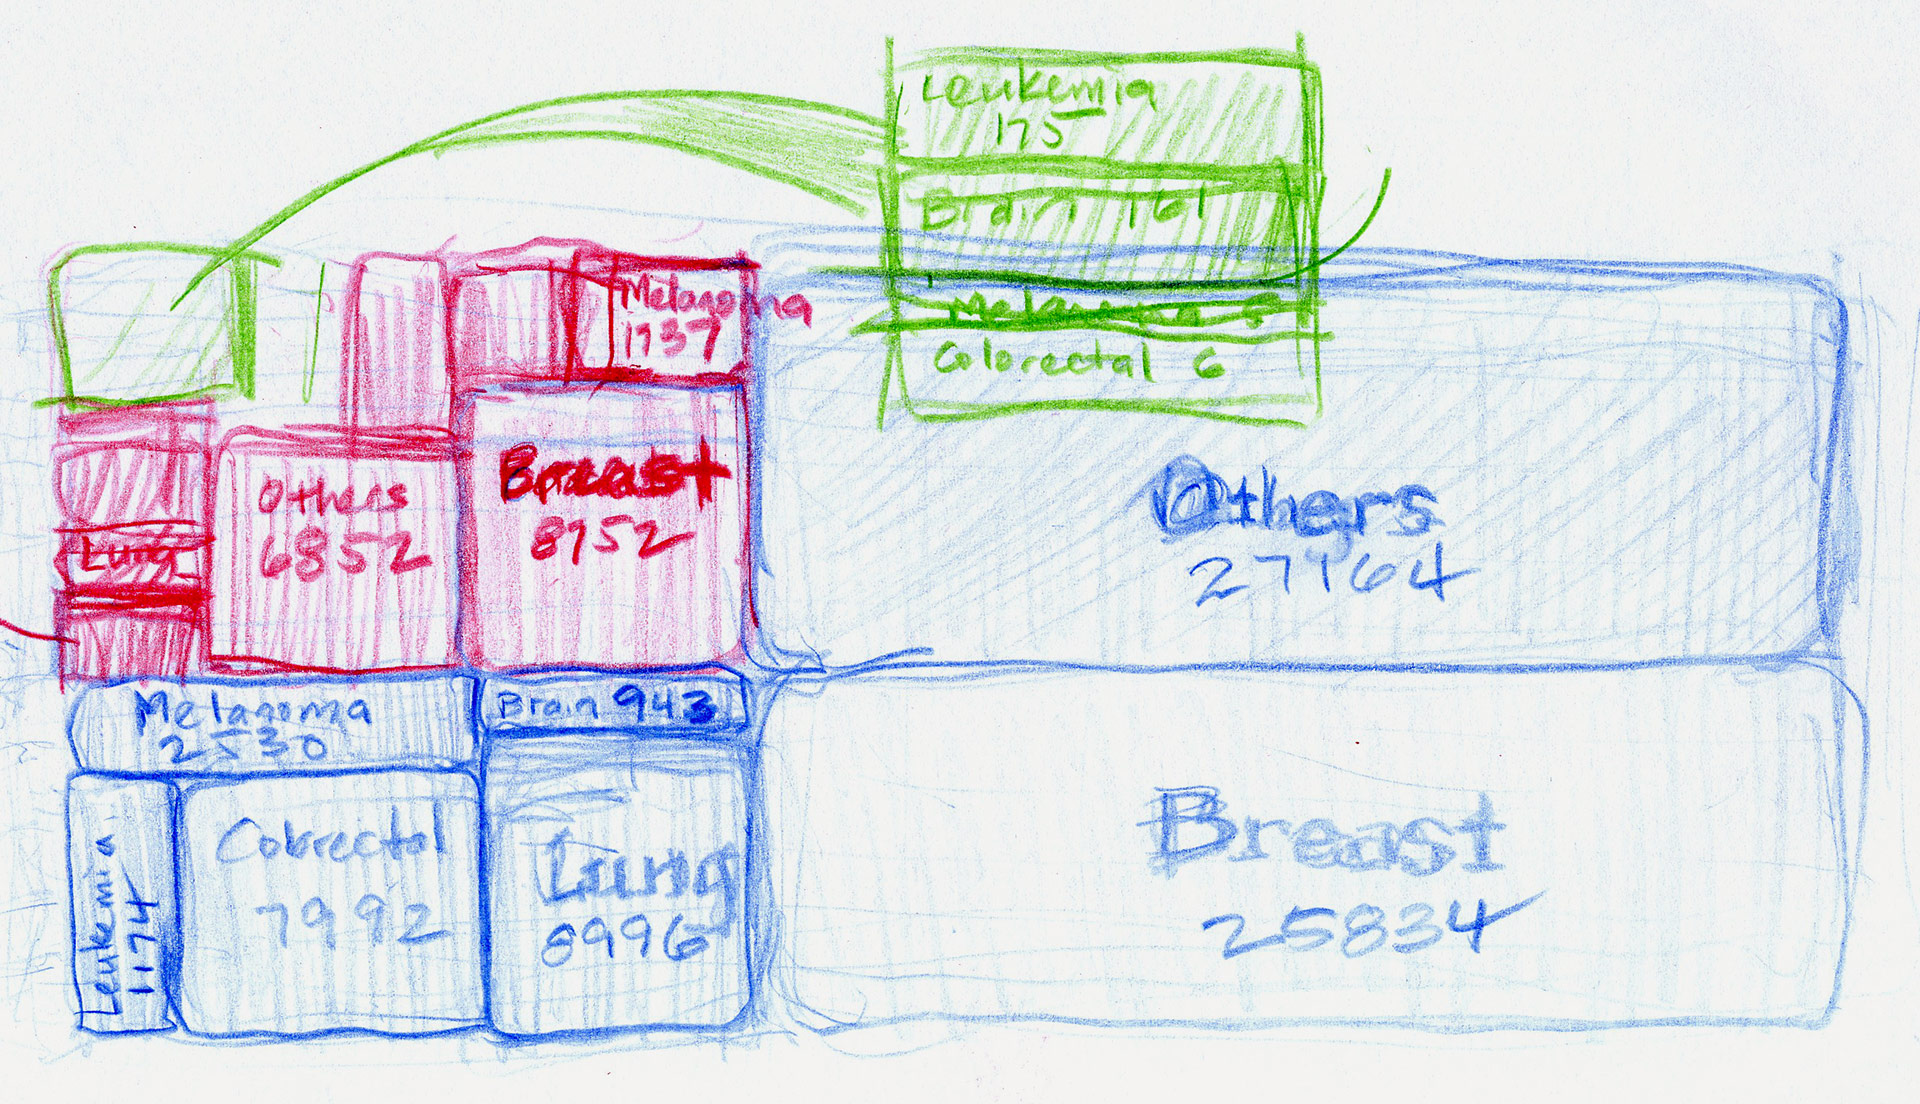 Leukemia
175
Brain 161
Colorectal 6
Melanoma
1737
Others
6852
Breast
8952
Lung
Others
27164
Melanoma
2530
Brain 943
Leukemia
1174
Colorectal
7992
Lung
8996
Breast
25834